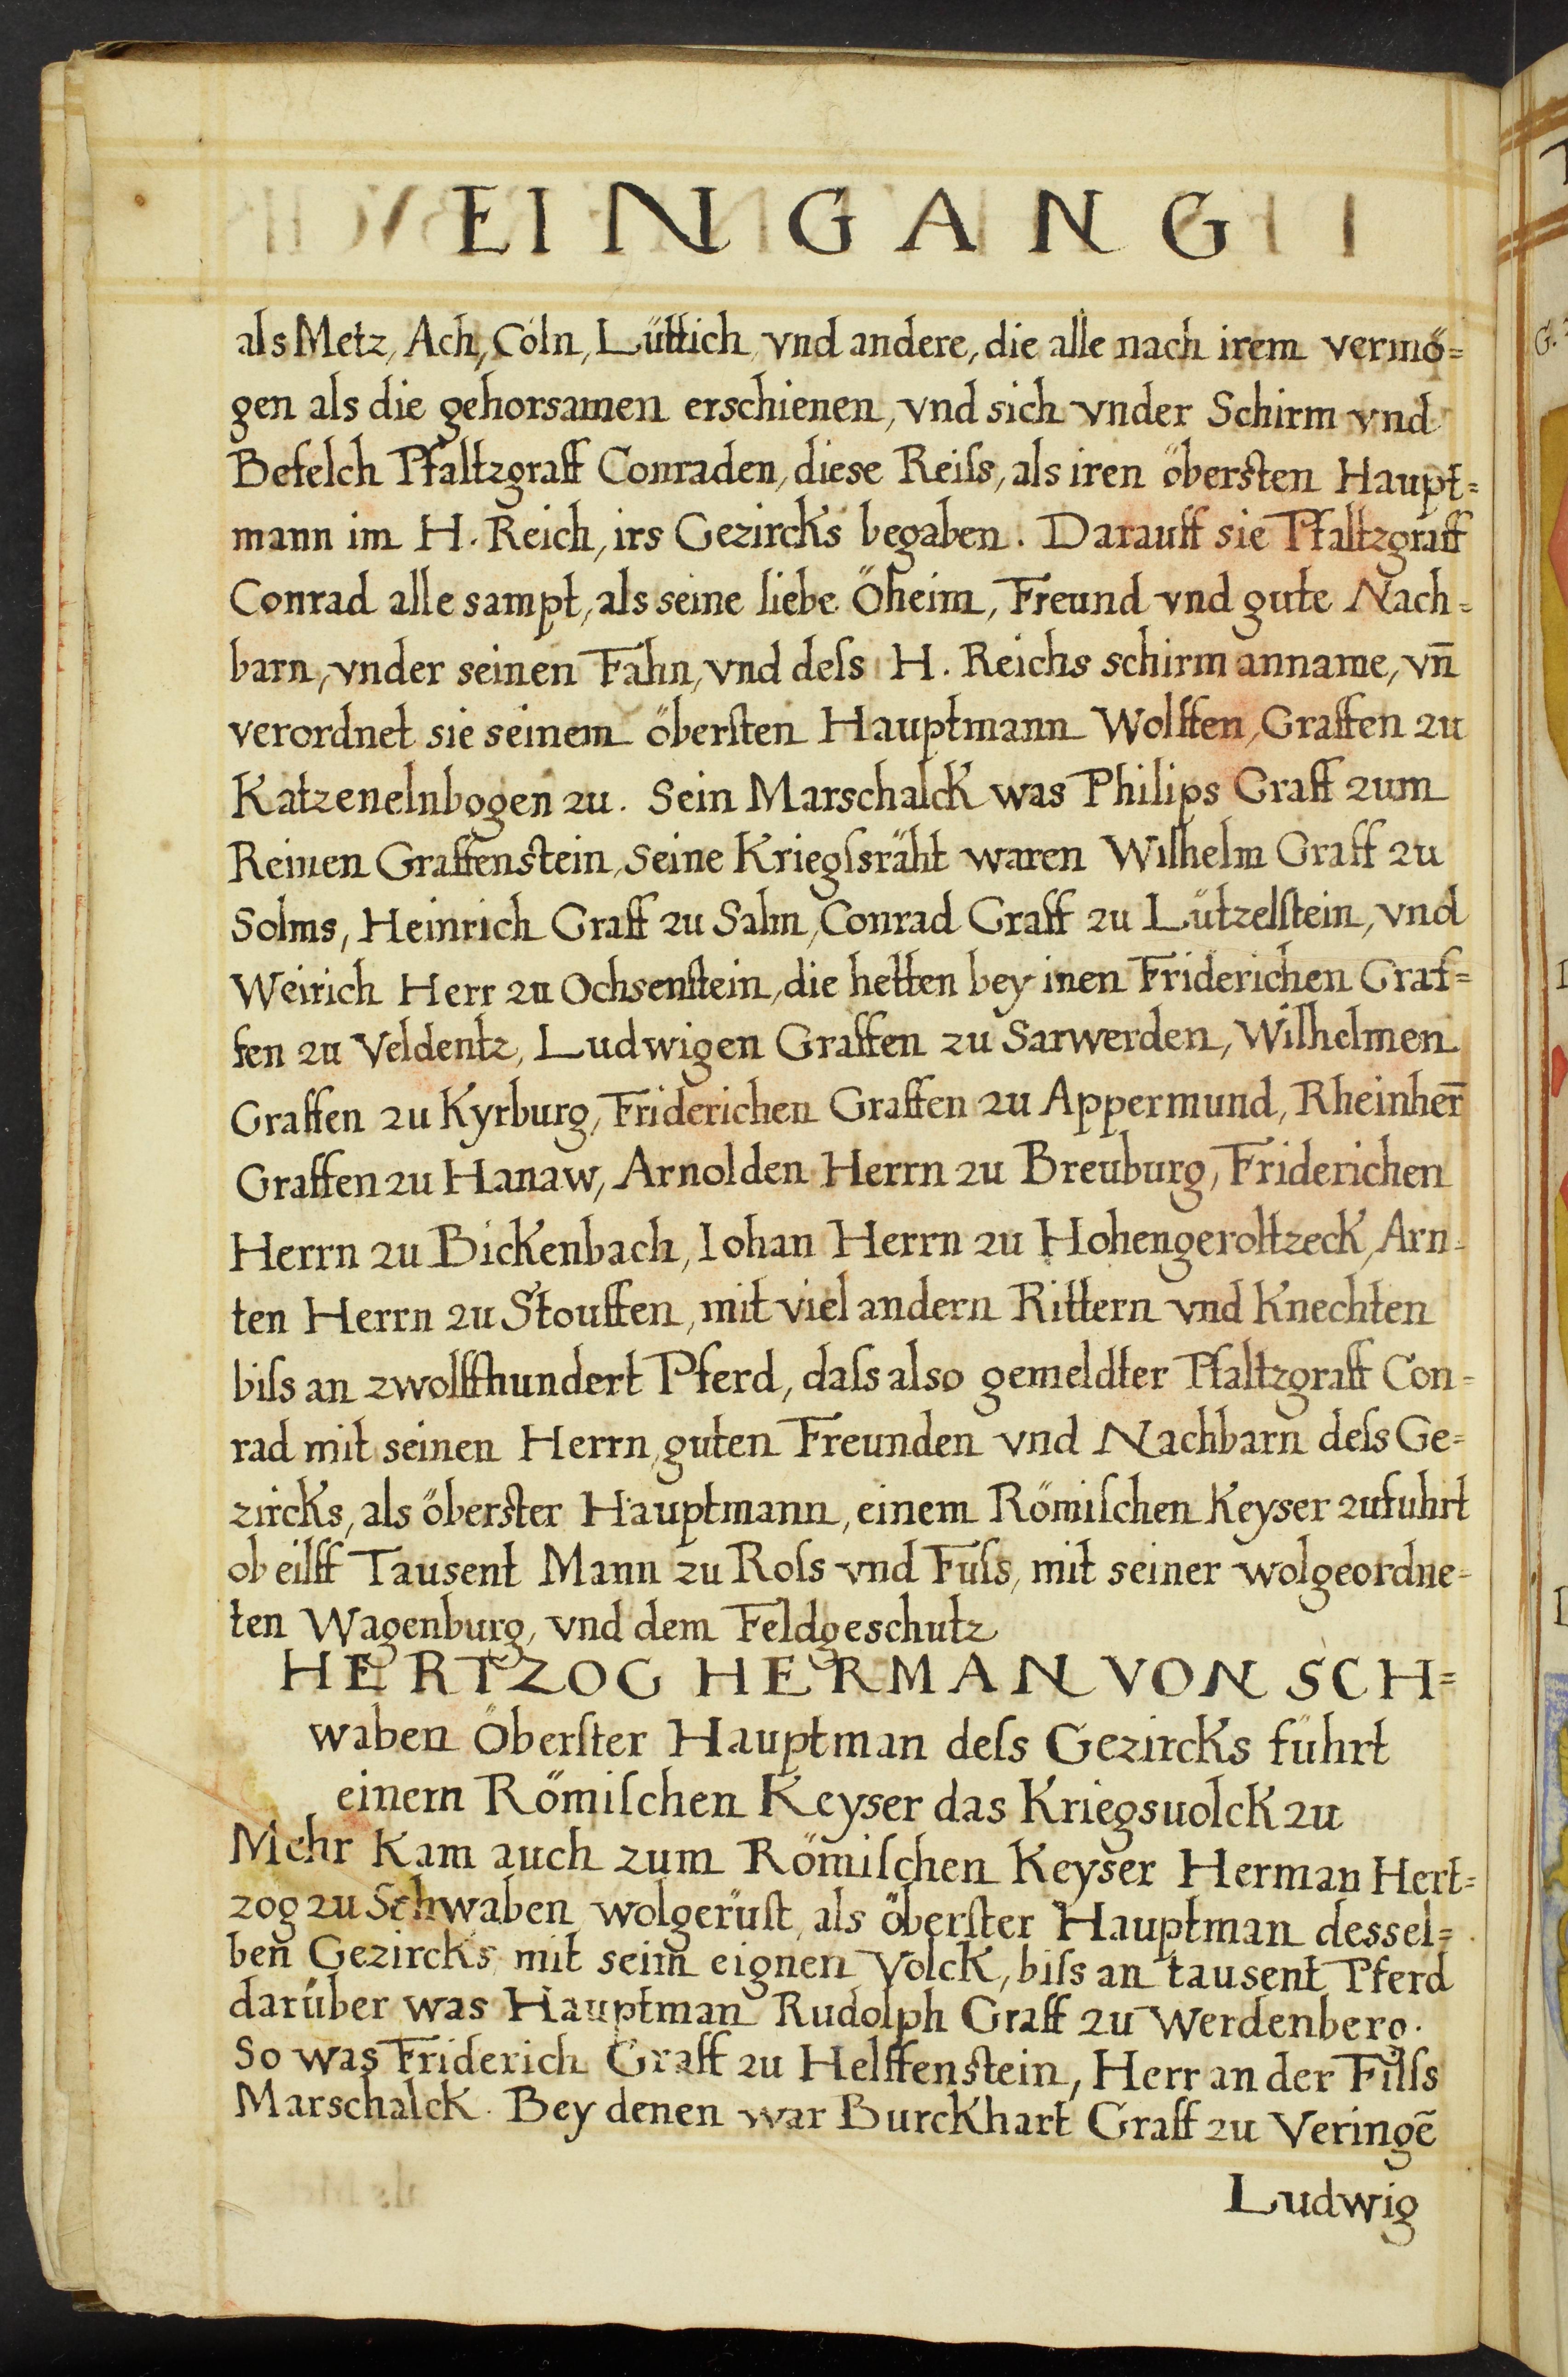 EINGANG
als Metz, Ach, Cöln, Lüttich vnd andere, die alle nach irem vermö=
gen als die gehorsamen erschienen, vnd sich vnder Schirm vnd
Befelch Pfaltzgraff Conraden, diese Reiſs, als iren öbersten Haupt=
mann im H. Reich, irs Gezircks begaben. Darauff sie Pfaltzgraff
Conrad alle sampt, als seine liebe Öheim, Freund vnd gute Nach=
barn, vnder seinen Fahn, vnd deſs H. Reichs schirm anname, vn̄
verordnet sie seinem öberſten Hauptmann Wolffen, Graffen zu
Katzenelnbogen zu. Sein Marschalck was Philips Graff zum
Reinen Graffenstein, Seine Kriegſsräht waren Wilhelm Graff zu
Solms, Heinrich Graff zu Salm, Conrad Graff zu Lützelſtein, vnd
Weirich Herr zu Ochsenſtein, die hetten bey inen Friderichen Graf=
fen zu Veldentz, Ludwigen Graffen zu Sarwerden, Wilhelmen
Graffen zu Kyrburg, Friderichen Graffen zu Appermund, Rheinher̄
Graffen zu Hanaw, Arnolden Herrn zu Breuburg, Friderichen
Herrn zu Bickenbach, Iohan Herrn zu Hohengeroltzeck, Arn=
ten Herrn zu Stouffen, mit viel andern Rittern vnd Knechten
biſs an zwolffhundert Pferd, daſs also gemeldter Pfaltzgraff Con=
rad mit seinen Herrn, guten Freunden vnd Nachbarn deſs Ge=
zircks, als öberster Hauptmann, einem Römiſchen Keyser zufuhrt
ob eilff Tausent Mann zu Roſs vnd Fuſs, mit seiner wolgeordne=
ten Wagenburg, vnd dem Feldgeschutz
HERTZOG HERMAN VON SCH=
waben Öberſter Hauptman deſs Gezircks führt
einem Römiſchen Keyser das Kriegsuolck zu
Mehr Kam auch zum Römiſchen Keyser Herman Hert=
zog zu Schwaben wolgerüſt, als öberſter Hauptman dessel=
ben Gezircks mit seim̄ eignen Volck, biſs an tausent Pferd
darüber was Hauptman Rudolph Graff zu Werdenberg.
So was Friderich Graff zu Helffenstein, Herr an der Filſs
Marschalck. Bey denen war Burckhart Graff zu Veringē
Ludwig